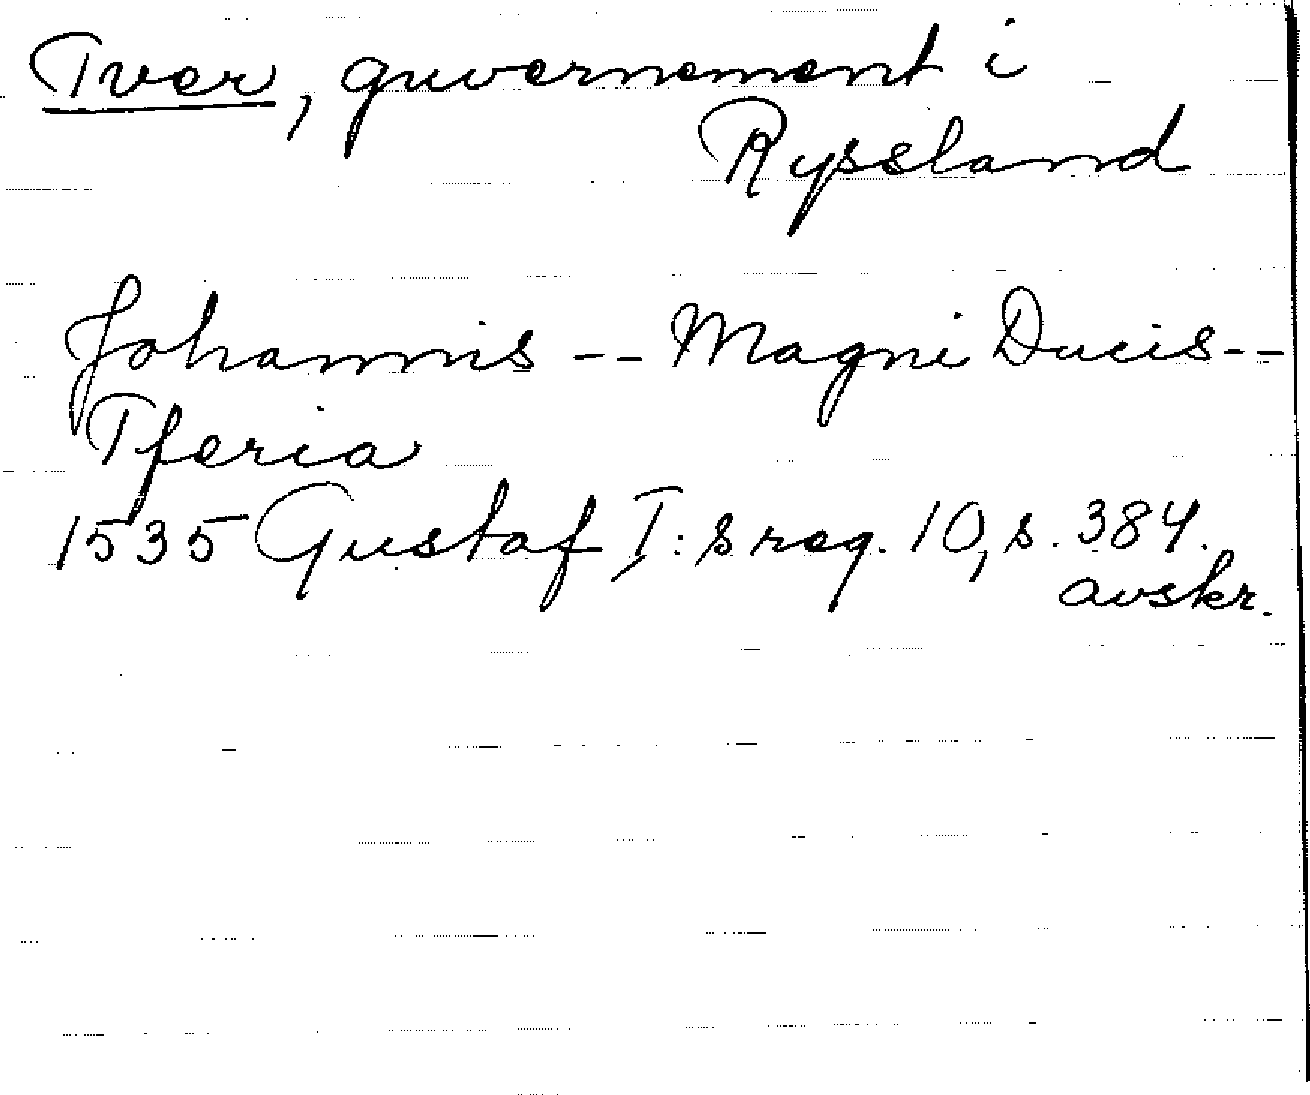 Tver, guvernement i
Ryssland
Johannis -- Magni Ducis --
Tferia
1535 Gustaf I:s reg. 10, s. 384.
avskr.